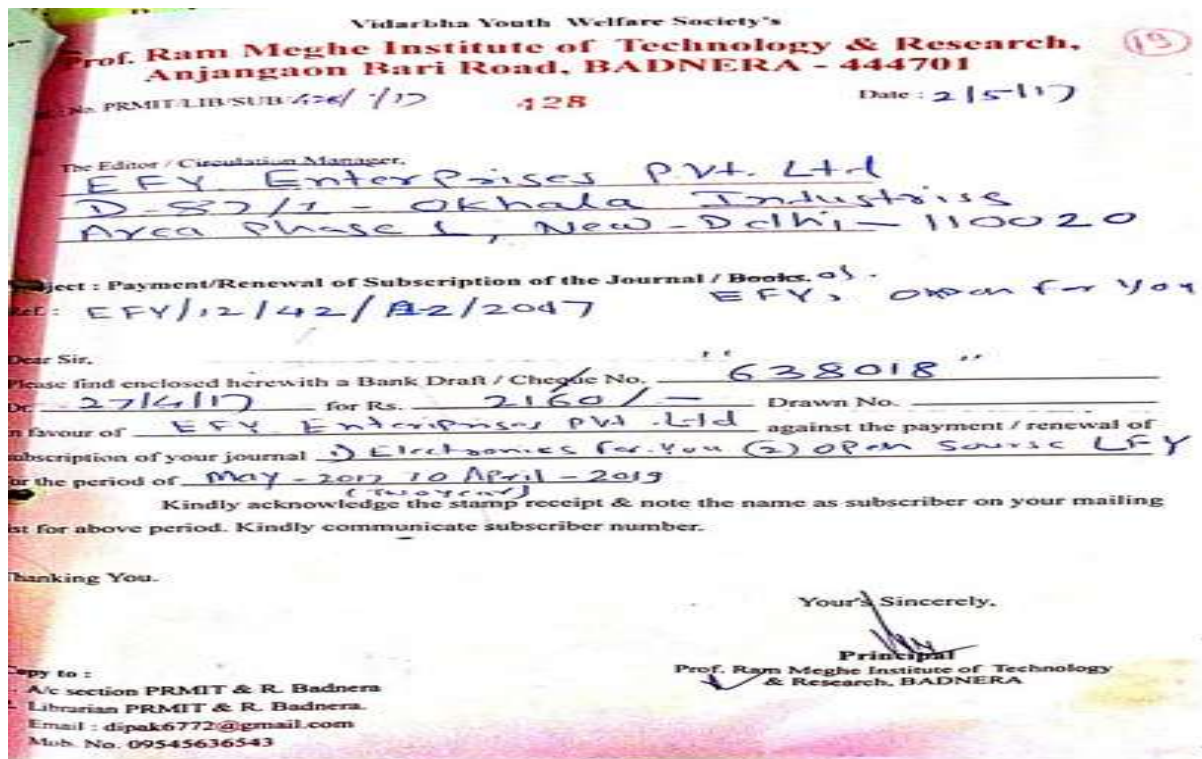 Vidarbha Youth Welfare Society's
Prof. Ram Meghe Institute of Technology & Research,
19
Anjangaon Bari Road, BADNERA - 444701
No. PRMIT/LIB/SUB/ /17 428 Date : 2/5/17
The Editor / Circulation Manager,
EFY Enterprises Pvt. Ltd
D-87/1 - Okhala Industriss
Area Phase 1, New-Delhi - 110020
ject : Payment/Renewal of Subscription of the Journal / Books. of.
EFY, Open for You
Ref : EFY/12/42/ /2017
Dear Sir,
Please find enclosed herewith a Bank Draft / Cheque No. "638018"
Dt. 27/4/17 for Rs. 2160/- Drawn No.
in favour of EFY Enterprises Pvt. Ltd against the payment / renewal of
ubscription of your journal 1) Electronics For You (2) Open Sourse LFY
or the period of May - 2017 TO April - 2019
(Two year)
Kindly acknowledge the stamp receipt & note the name as subscriber on your mailing
st for above period. Kindly communicate subscriber number.
Thanking You.
Your's Sincerely,
Principal
Prof. Ram Meghe Institute of Technology
& Research, BADNERA
Copy to :
A/c section PRMIT & R. Badnera
Librarian PRMIT & R. Badnera.
Email : dipak6772@gmail.com
Mob. No. 09545636543